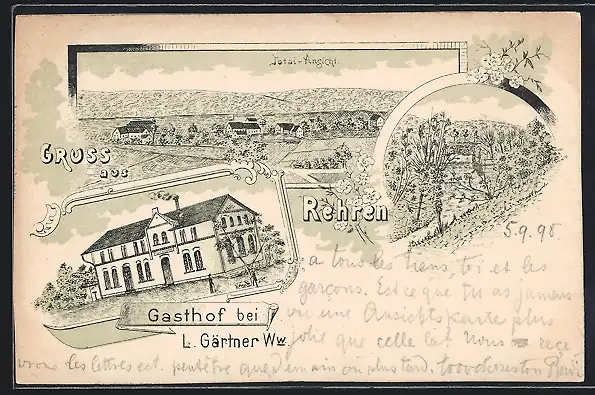 Total-Ansicht.
Gruss
aus
Rehren
5.9.98.
a tous les tiens, toi et les
garçons. Est ce que tu as jamais
vu une Ansichtskarte plus
jolie que celle la? Nous reçe
vrons les lettres est. peutêtre qu'demain ou plus tard.
Gasthof bei
L. Gärtner Ww.